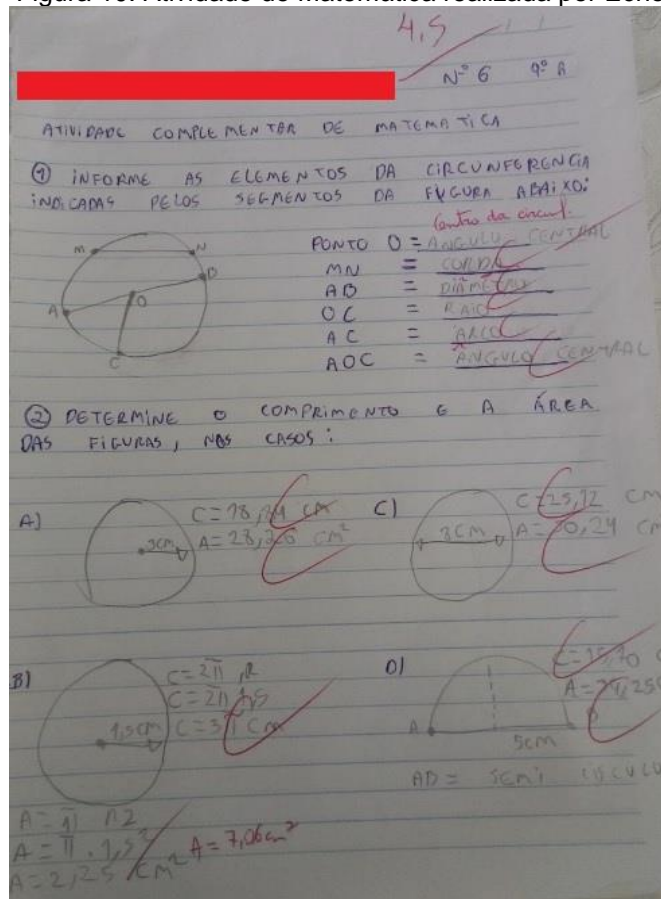 4,5
Nº 6 9º A
ATIVIDADE COMPLEMENTAR DE MATEMATICA
① INFORME AS ELEMENTOS DA CIRCUNFERENCIA
INDICADAS PELOS SEGMENTOS DA FIGURA ABAIXO:
Centro da circunf.
PONTO O = ANGULO CENTRAL
MN = CORDA
AD = DIÂMETRO
OC = RAIO
AC = ARCO
AOC = ÂNGULO CENTRAL
M
N
D
A
O
C
② DETERMINE O COMPRIMENTO E A ÁREA
DAS FIGURAS, NOS CASOS:
A)
3cm
C = 18,84 cm
A = 28,26 cm²
C)
8cm
C = 25,12 cm
A = 50,24 cm
B)
1,5cm
C = 2π . R
C = 2π 1,5
C = 3π cm
A = π R2
A = π . 1,5²
A = 2,25 cm²
A = 7,06 cm²
D)
C = 15,70
A = 39,25
A
5cm
AB = SEMI CIRCULO